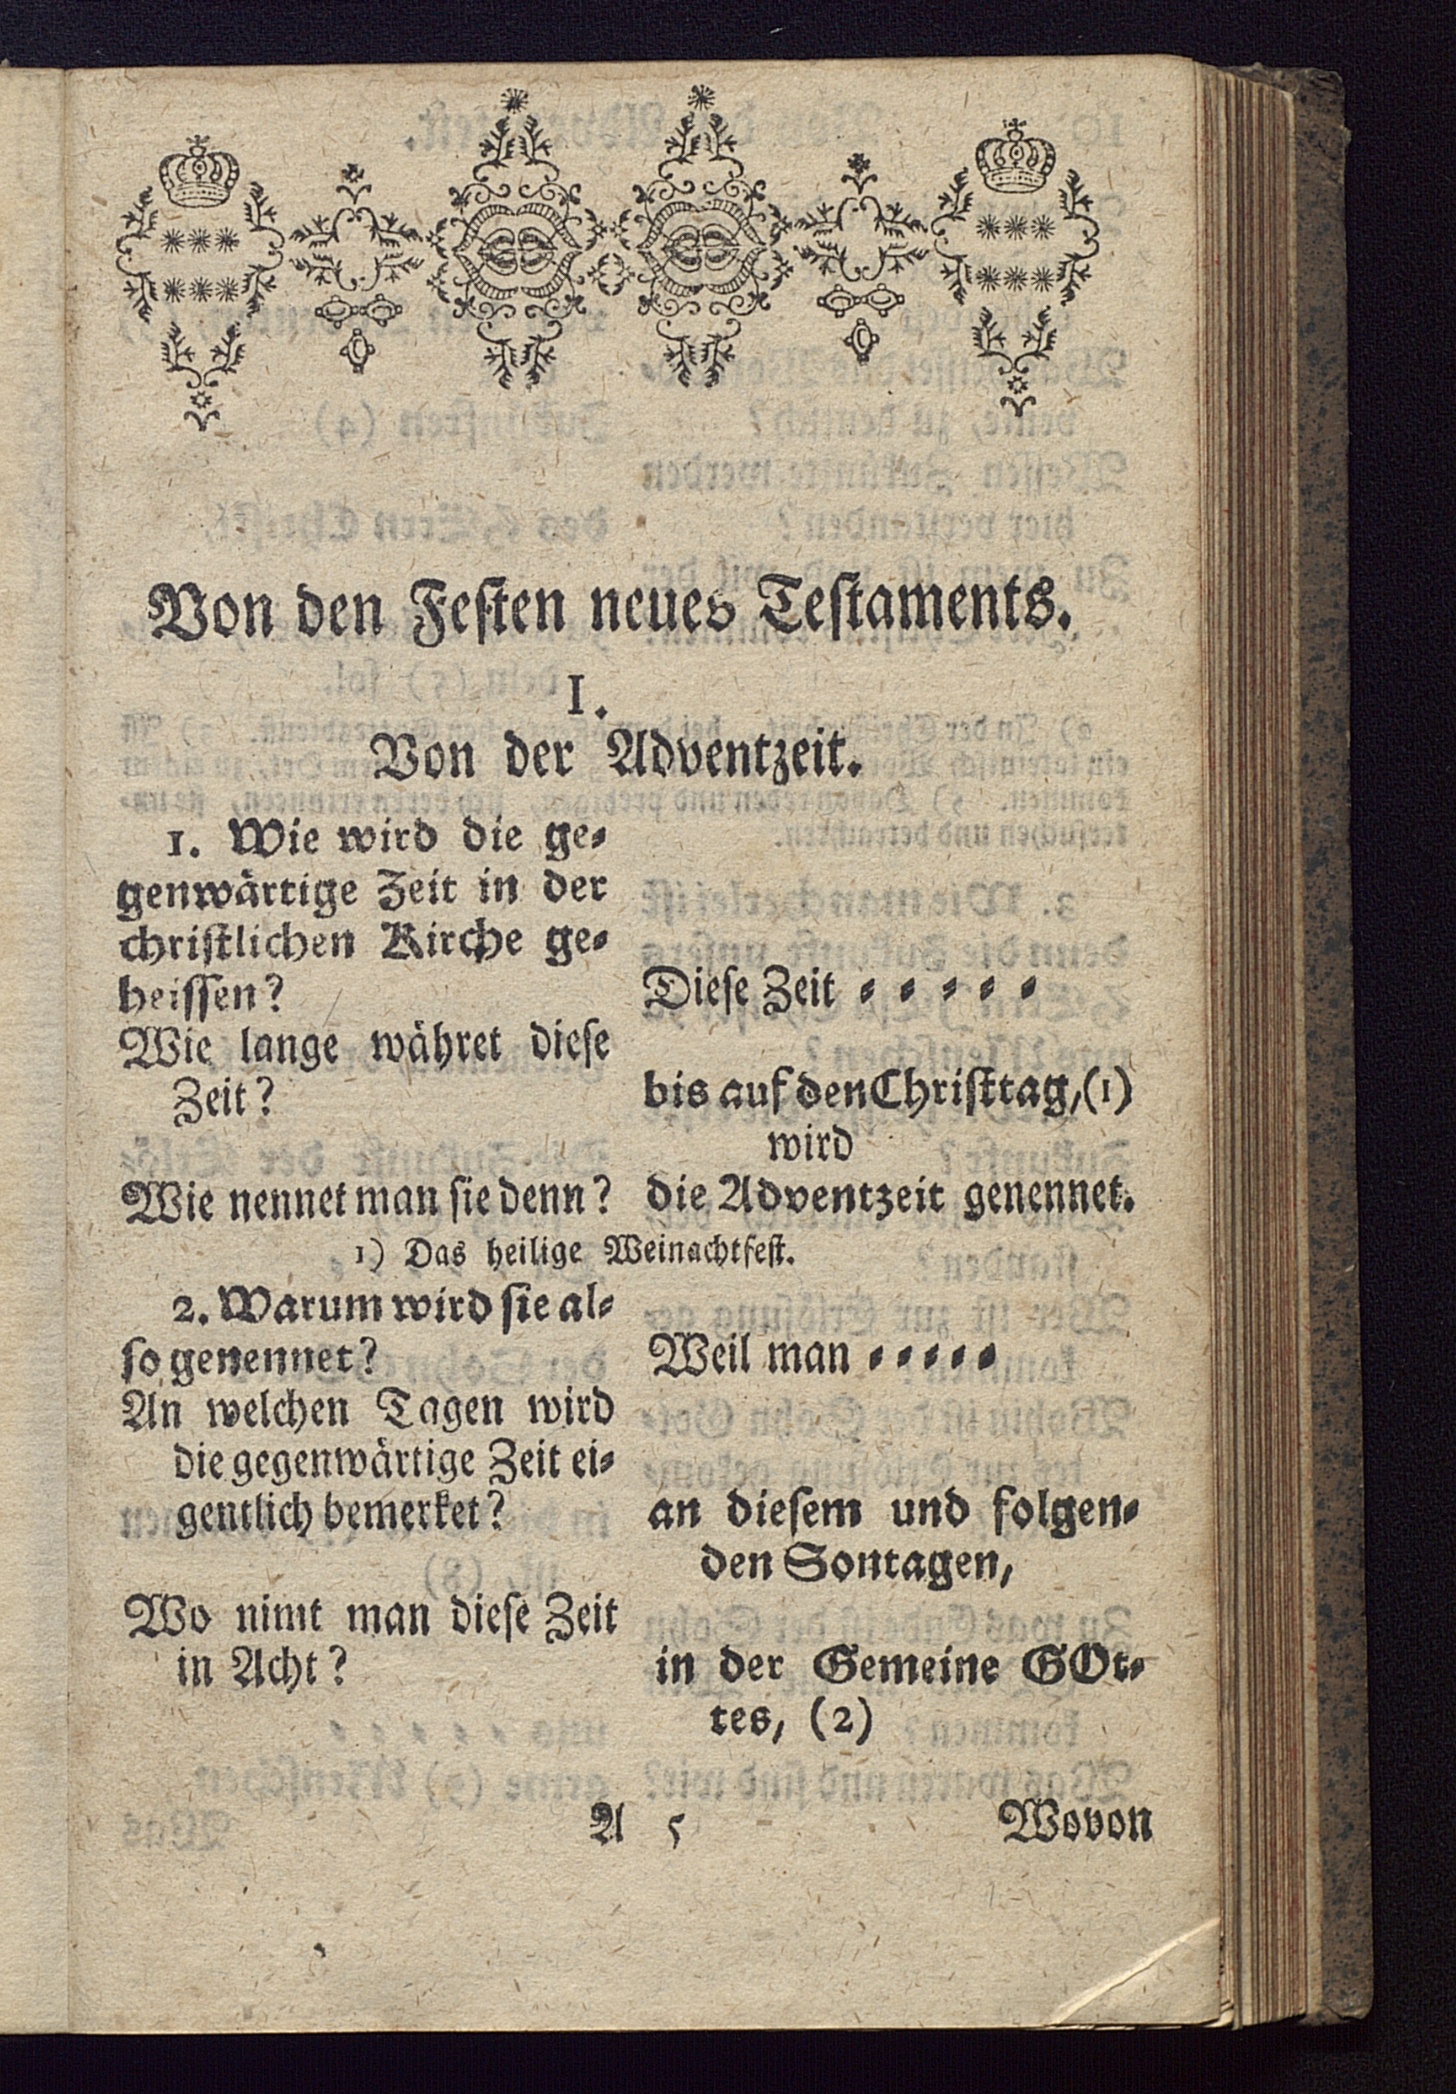 Von den Festen neues Testaments.
I.
Von der Adventzeit.
1. Wie wird die ge-
genwärtige Zeit in der
christlichen Kirche ge-
heissen?
Diese Zeit - - - - -
Wie lange währet diese
Zeit?
bis auf den Christtag, (1)
wird
Wie nennet man sie denn?
die Adventzeit genennet.
1) Das heilige Weinachtfest.
2. Warum wird sie al-
so genennet?
Weil man - - - - -
An welchen Tagen wird
die gegenwärtige Zeit ei-
gentlich bemerket?
an diesem und folgen-
den Sontagen,
Wo nimt man diese Zeit
in Acht?
in der Gemeine GOt-
tes, (2)
A 5
Wovon